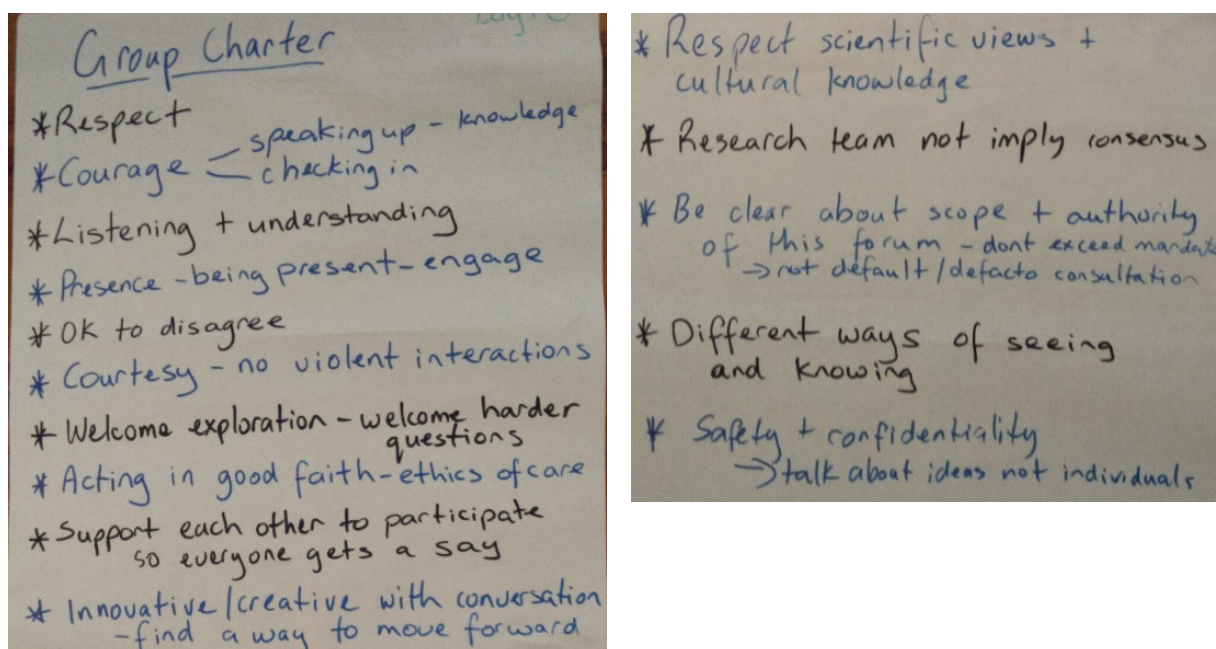 Group Charter
*Respect
*Courage < speaking up - knowledge
checking in
*Listening + understanding
*Presence - being present - engage
*OK to disagree
*Courtesy - no violent interactions
*Welcome exploration - welcome harder
questions
*Acting in good faith - ethics of care
*Support each other to participate
so everyone gets a say
*Innovative/creative with conversation
- find a way to move forward
*Respect scientific views +
cultural knowledge
*Research team not imply consensus
*Be clear about scope + authority
of this forum - dont exceed mandate
→ not default/defacto consultation
*Different ways of seeing
and knowing
*Safety + confidentiality
→ talk about ideas not individuals